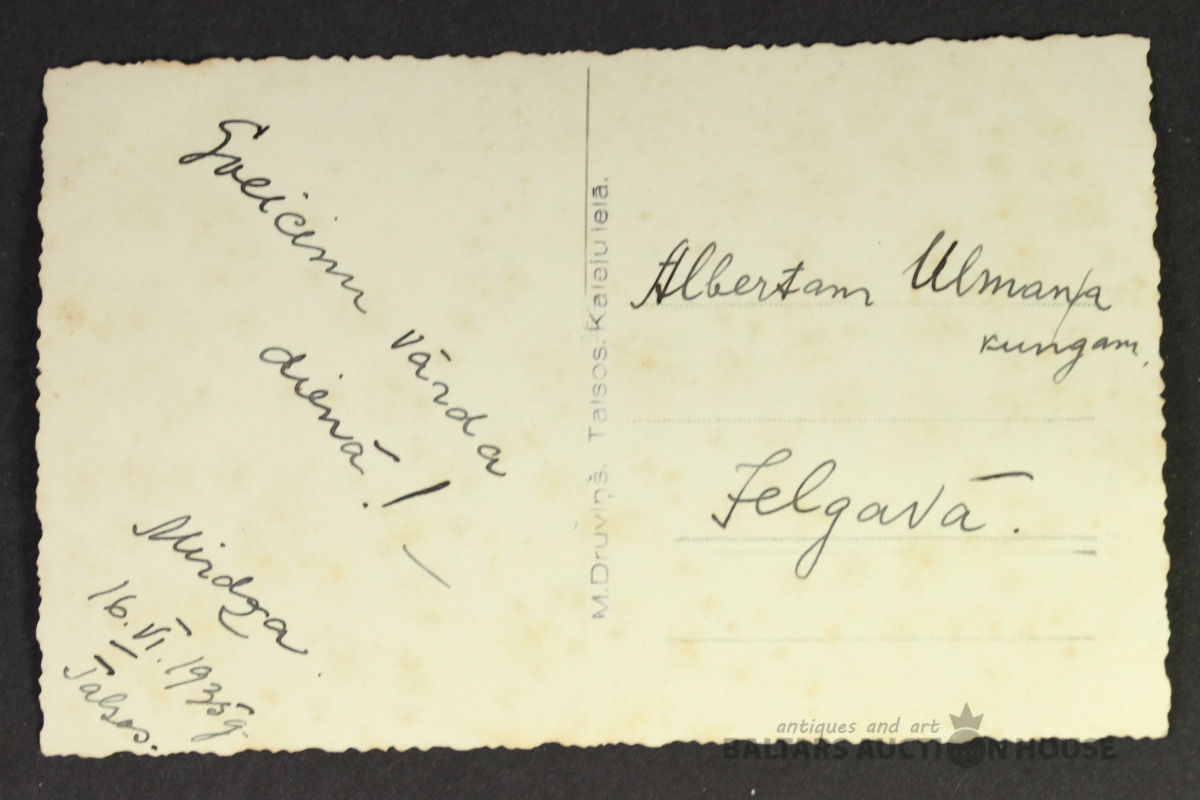 Sveicinu vārda
dienā!
Mirdza
16.VI.1935g.
Talsos.
M.Druviņš. Talsos. Kaļeļu ielā.
Albertam Ulmaņa
kungam,
Jelgavā.
antiques and art
BALTARS AUCTION HOUSE